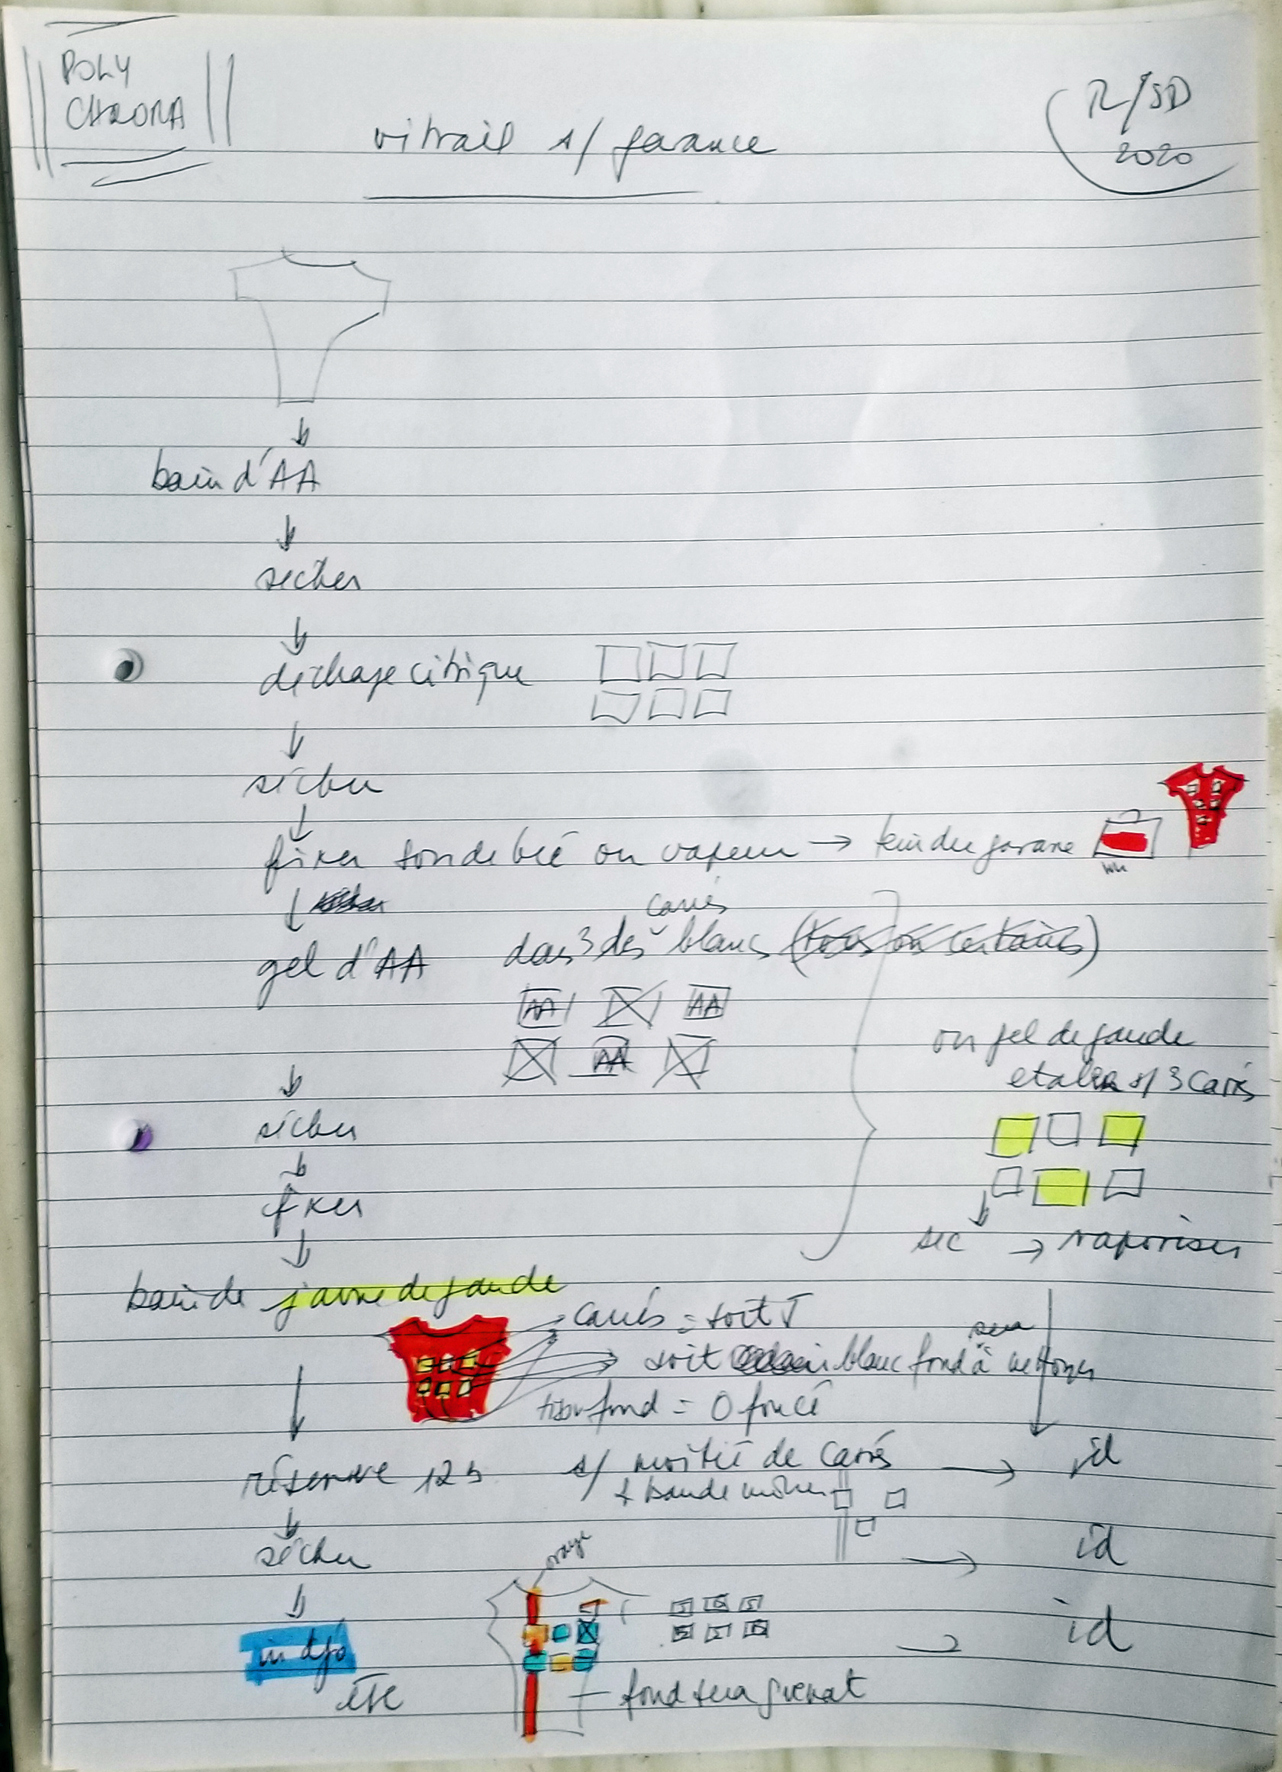 POLY
CHROMA
vitrail s/ garance
R/SD
2020
bain d'AA
sécher
décharge citrique
sécher
fixer son de blé ou vapeur → teindre garance
gel d'AA
dans 3 des carrés blancs (tous ou certains)
AA AA
AA
ou gel de gaude
etaler s/ 3 carrés
sécher
fixer
sec → vaporiser
bain de jaune de gaude
carrés = soit J
soit blanc fond sera à nettoyer
tissu fond = O foncé
réserve 12h s/ moitié de carrés → id
+ bande
sécher → id
orange
indigo → id
etc
fond sera grenat